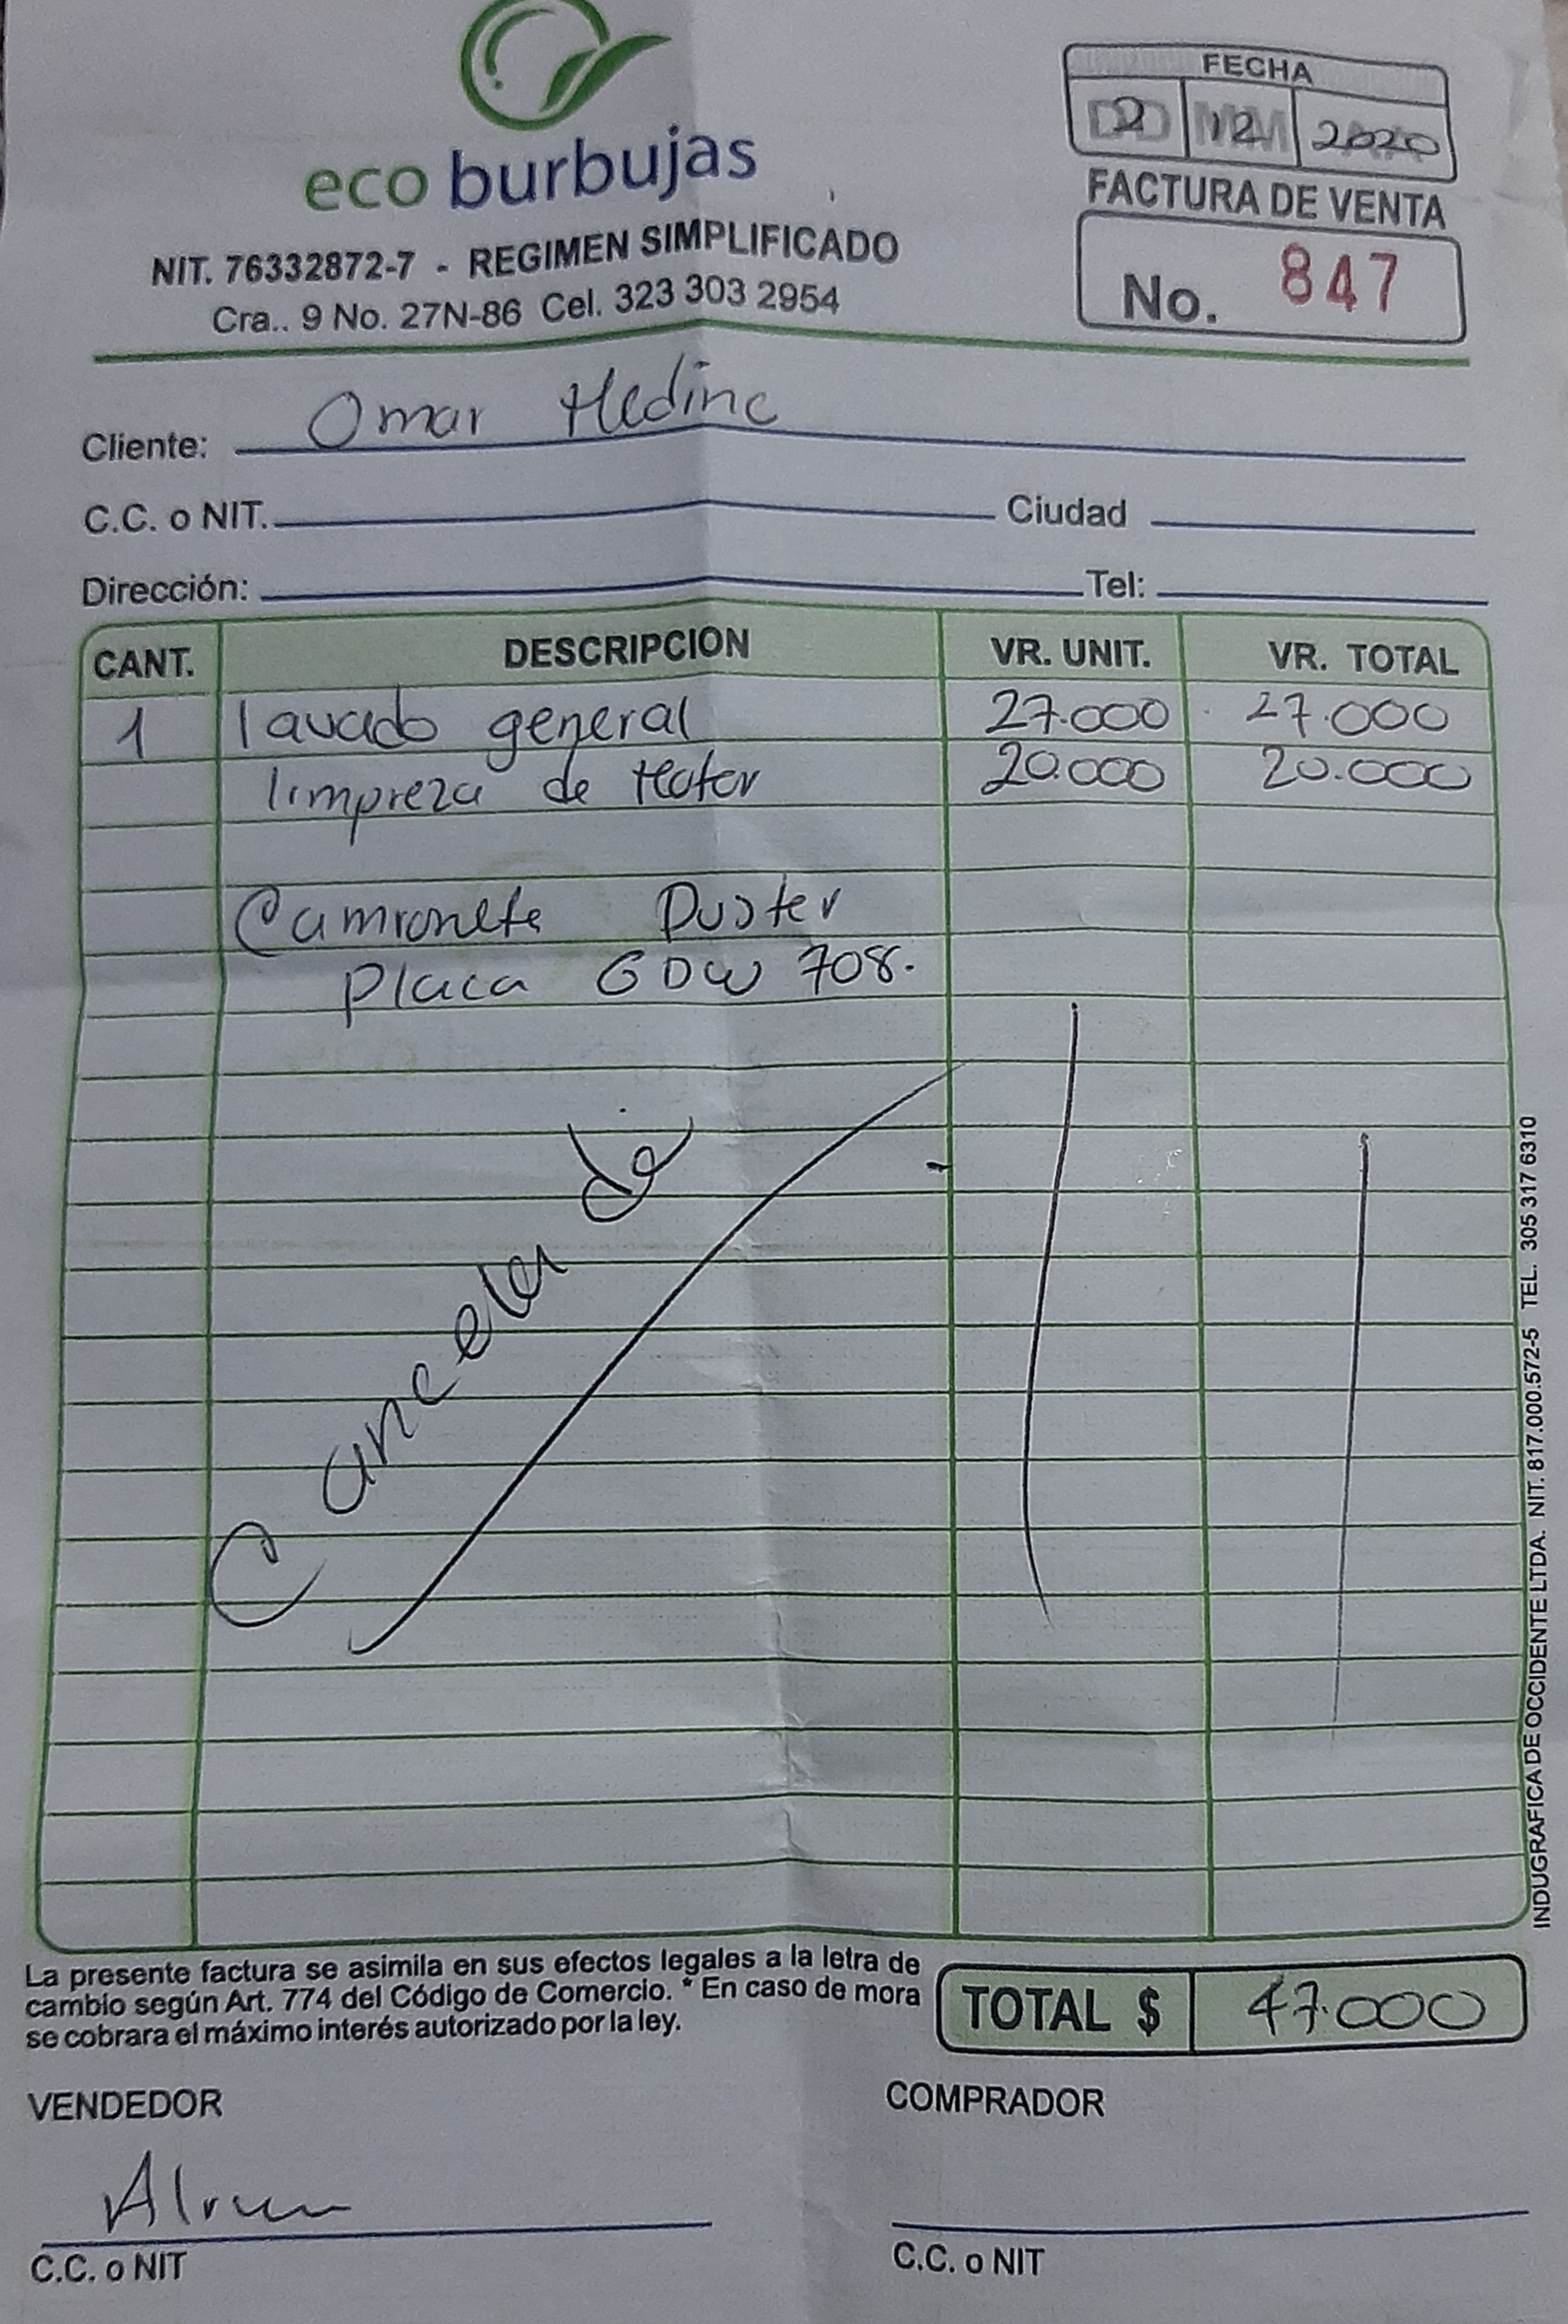 FECHA
2 12 2020
eco burbujas
FACTURA DE VENTA
NIT. 76332872-7 - REGIMEN SIMPLIFICADO
Cra.. 9 No. 27N-86 Cel. 323 303 2954
No. 847
Cliente: Omar Medina
C.C. o NIT. Ciudad
Dirección: Tel:
CANT. DESCRIPCION VR. UNIT. VR. TOTAL
1 lavado general 27.000 27.000
limpreza de Motor 20.000 20.000
Camioneta Duster
Placa GDW 708.
Cancelado
La presente factura se asimila en sus efectos legales a la letra de
cambio según Art. 774 del Código de Comercio. * En caso de mora
se cobrara el máximo interés autorizado por la ley.
TOTAL $ 47.000
VENDEDOR COMPRADOR
C.C. o NIT C.C. o NIT
INDUGRAFICA DE OCCIDENTE LTDA. NIT. 817.000.572-5 TEL. 305 317 6310